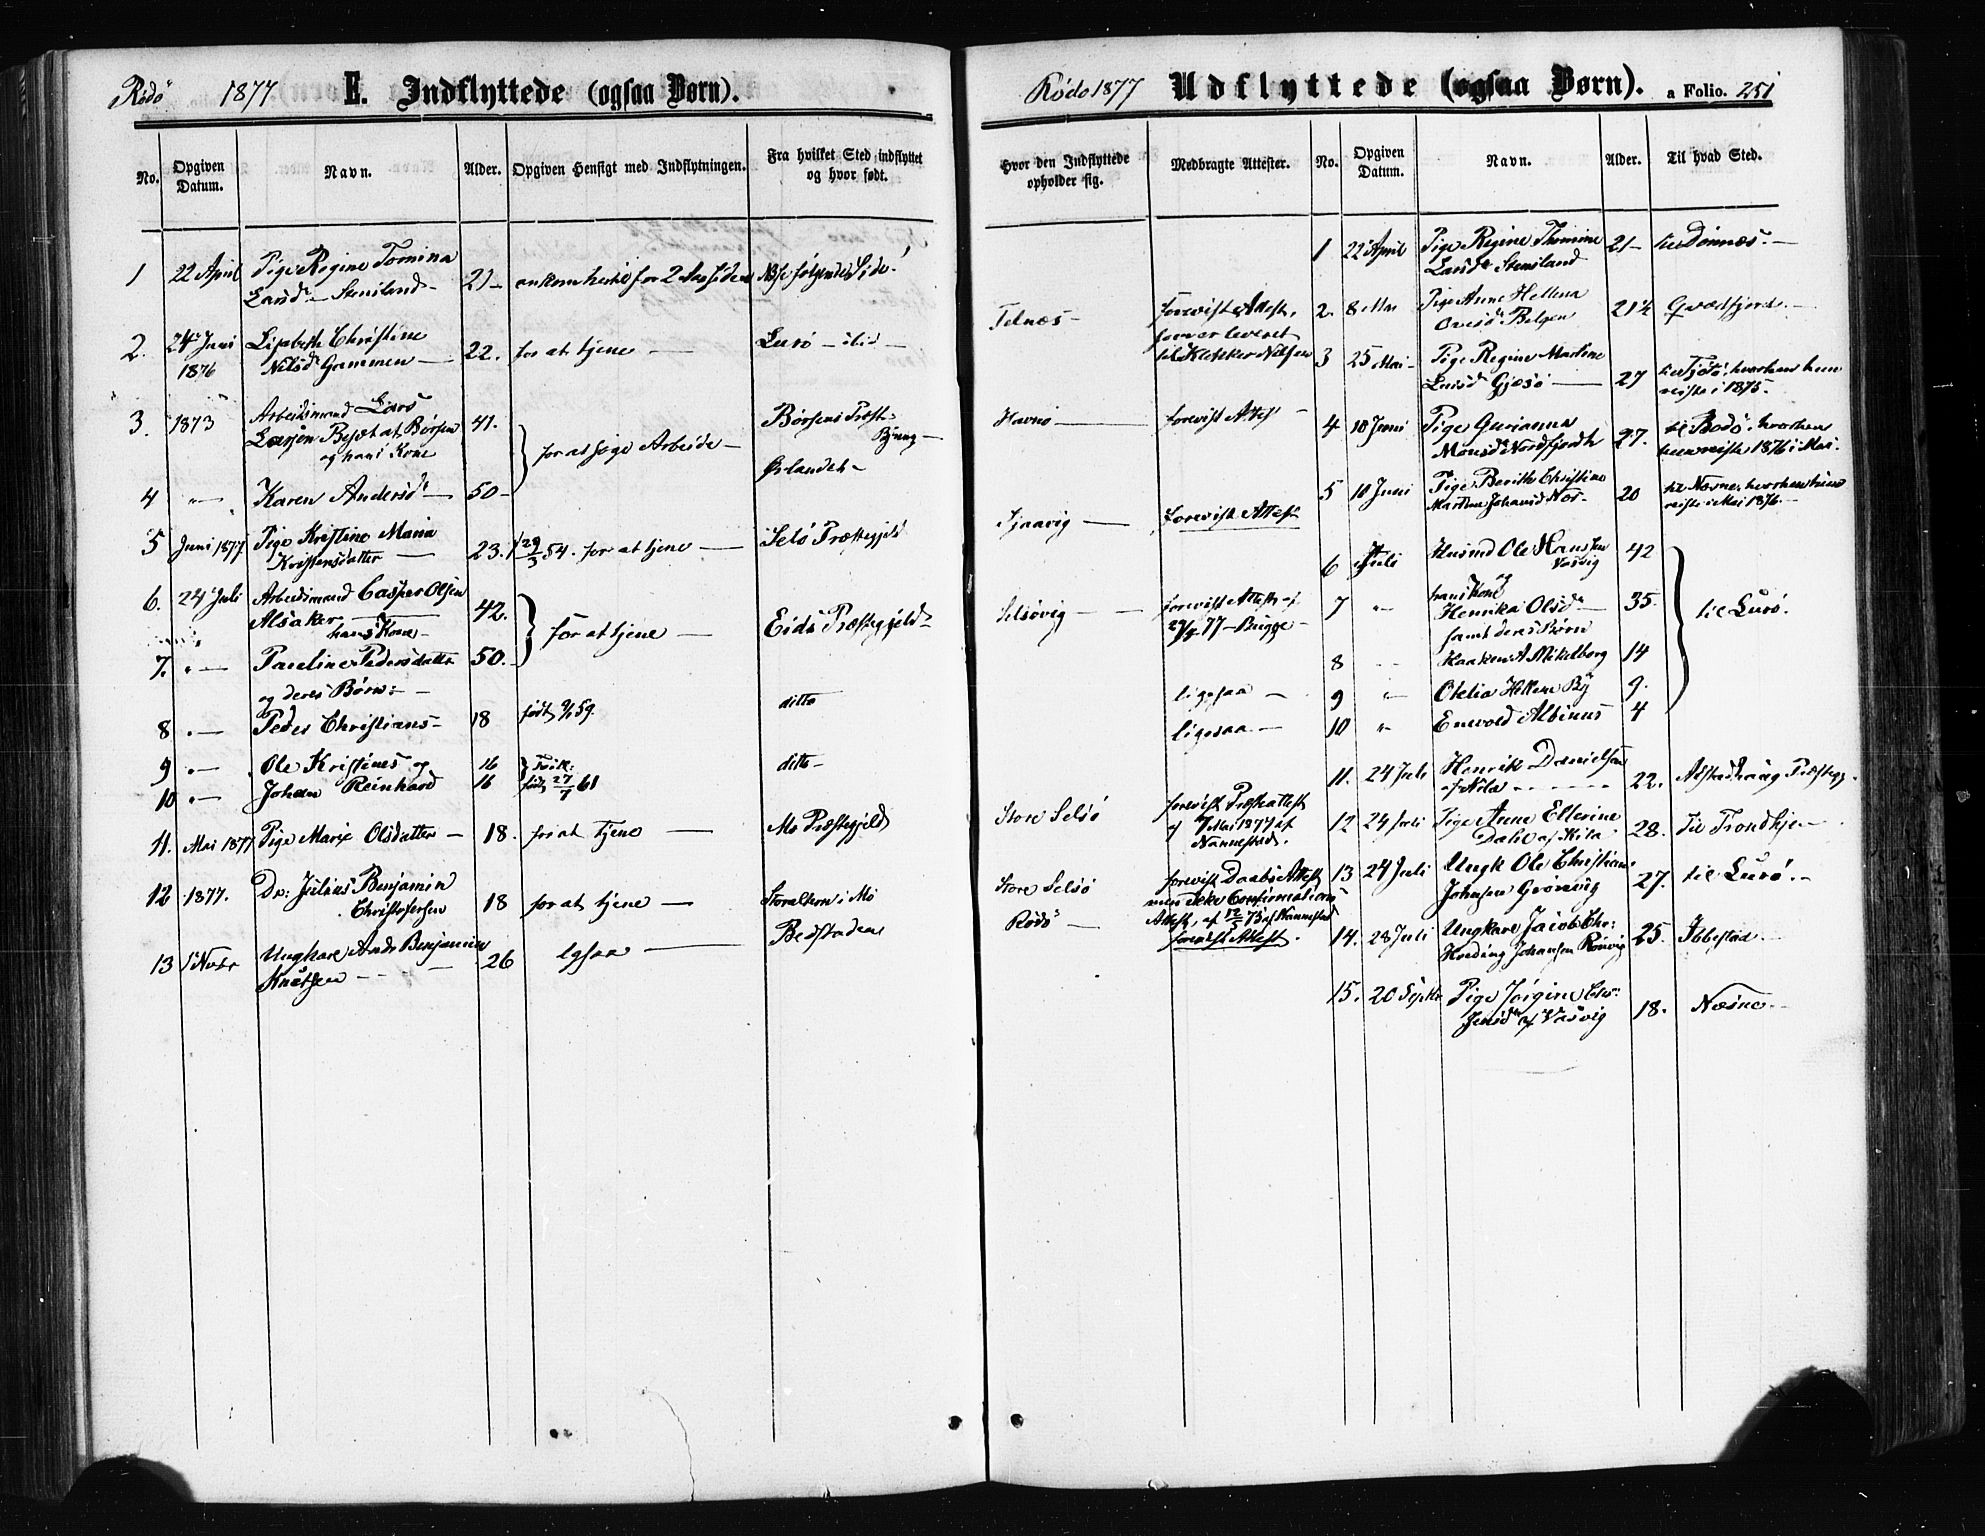 Rödö 1877 E. Indflyttede (ogsaa Børn).
No. Opgiven Datum. Navn. Alder. Opgiven Hensigt med Indflytningen. Fra hvilket Sted indflyttet og hvor født.
1 22 April Pige Regine Tomina 21 ankom hertil for 2 Aar siden
Larsd. Stensland
2. 24 Juni Lisabeth Christine 22. for at tjene Lurö
1876 Nilsd. Grammen
3. 1873 Arbeidsmand Lars 41. Børsens Præst-
Larsen Bejset at Børsen for at søge Arbeide
og hans Kone Ørlandet
4 " Karen Andersd. 50
5 Juni 1877 Pige Kristine Maria 23. 29/3 54. for at tjene Selö Præstegjeld
Kristensdatter
6. 24 Juli Arbeidsmand Casper Olsen 42. for at tjene Eids Præstegjeld
Alsaker hans Kone
7. " Pauline Pedersdatter 50.
og deres Børn:
8 " Peder Christians 18 født 9/1 59. ditto
9 " Ole Kristines og 16 ditto
10 " Johan Reinhard 16 født 27/7 61
11. Mai 1877 Pige Marie Olsdatter 18. for at tjene Mo Præstegjeld
12 1877. Dr: Julius Benjamin 18 for at tjene i Mo
Christofersen
13 Novbr Ungkare Ands Benjamin 26 lgsaa Bedstaden
Knutsen
Rödö 1877 Udflyttede (ogsaa Børn). a Folio. 251
Hvor den Indflyttede opholder sig. Medbragte Attester. No. Opgiven Datum. Navn. Alder. Til hvad Sted.
1 22 April Pige Regine Thomine 21 til Dønnæs.
Larsd. Stensland
Telnæs forevist Attest, 2. 8 Mai Pige Anne Hellena 21½ Qvædfjord
Ovesd. Bolgen
til Klokker Nilsen 3 25 Mai Pige Regine Martine 27 til Tjötö, hvorhen hun
Larsd. Gjesö reiste i 1875.
Havnö forevist Attest 4 10 Juni Pige Gurianna 27. til Bodö, hvorhen
Monsd. Nordfjordh hun reiste 1876 i Mai.
Sjaavig forevist Attest 5 10 Juni Pige Berith Christine 20 til Næsne, hvorhen hun
Marthine Johansd. Næs reiste i Mai 1876.
6 Juli Husmd Ole Hansen 42
Vasvig
Selsövig forevist Attest af 7 " hans Kone 35. til Lurö.
27/5 77 Bugge Henrika Olsd.
samt deres Børn
8 Haaken A Mikelborg 14
ligesaa 9 " Otelia Hellene By 9.
ligesaa 10 " Enevold Albinus 4
11. 24 Juli Henrik Danielsen 22. Alstadhaug Præstegj.
af Kila
Store Selsö forevist Præsteattest 12 24 Juli Pige Anne Ellerine 28. Til Trondhjem
af 7 Mai 1877 af Dahl af Kila
Nannestad.
Store Selsö forevist Daabs Attest 13 24 Juli Ungk Ole Christian 27. til Lurö.
men ikke Confirmations Johnsen Grönvig
Rödö Attest, af 12/5 73 af Nannestad
forevist Attest. 14. 28 Juli Ungkare Jacob Chr: 25. Ibbestad
Hveding Johansen Rönvig
15. 20 Septbr Pige Jörgine Chr: 18. Næsne
Jensd. af Vasvig